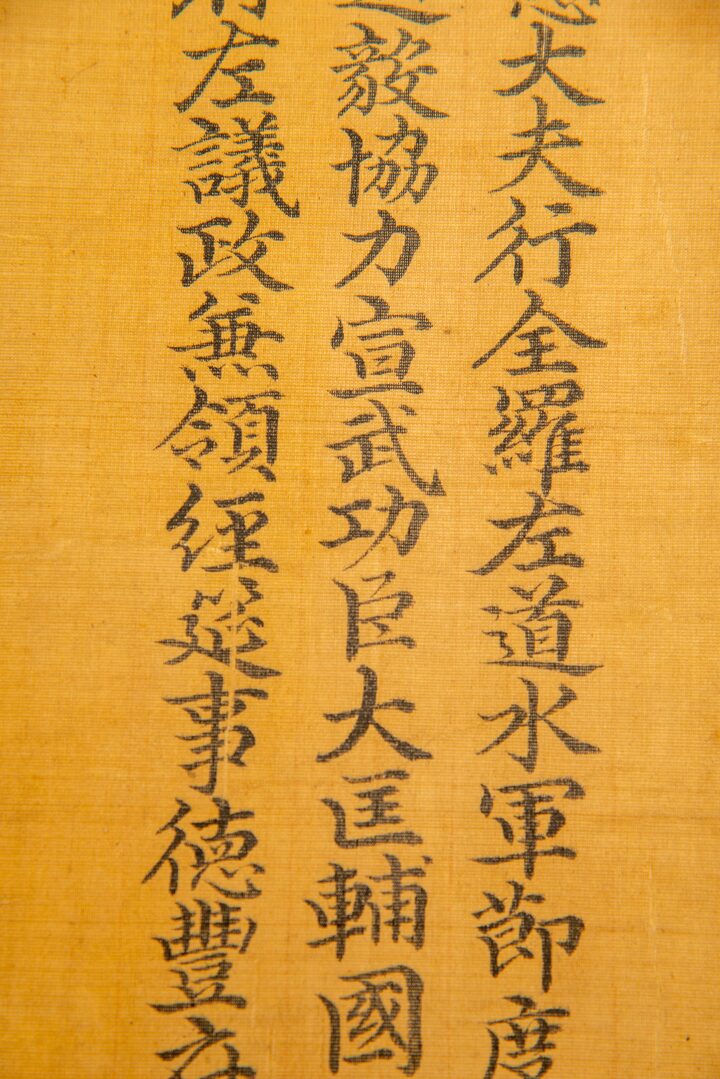 大夫行全羅左道水軍節度
毅協力宣武功臣大匡輔國
左議政兼領經筵事德豐